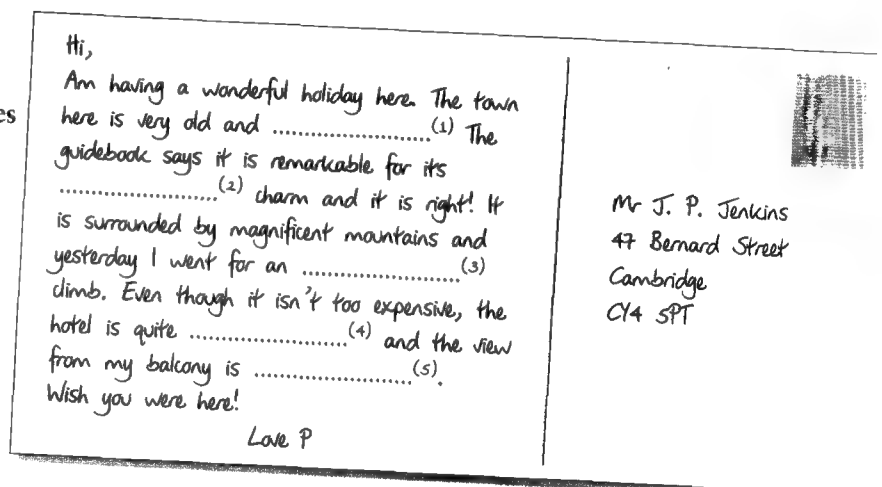 Hi,
Am having a wonderful holiday here. The town
here is very old and ........................(1) The
guidebook says it is remarkable for its
........................(2) charm and it is right! It
is surrounded by magnificent mountains and
yesterday I went for an ........................(3)
climb. Even though it isn't too expensive, the
hotel is quite ........................(4) and the view
from my balcony is ........................(5).
Wish you were here!
Love P
Mr J. P. Jenkins
47 Bernard Street
Cambridge
CY4 5PT
es